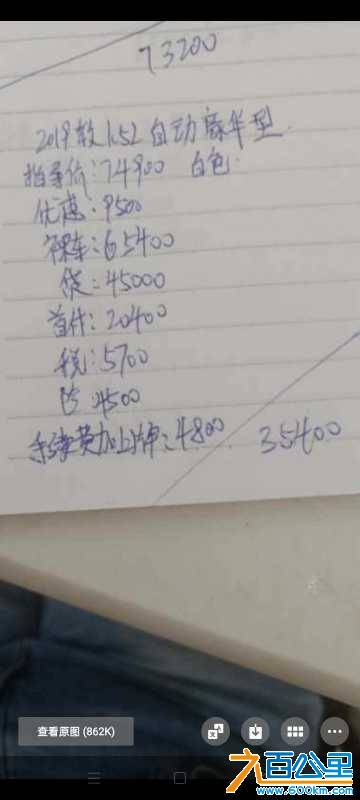 73200
2019款1.5L自动豪华型
指导价:74900 白色
优惠:9500
裸车:65400
贷:45000
首付:20400
税:5700
保:4500
手续费加上牌:4800 35400
查看原图 (862K)
六百公里
www.600km.com